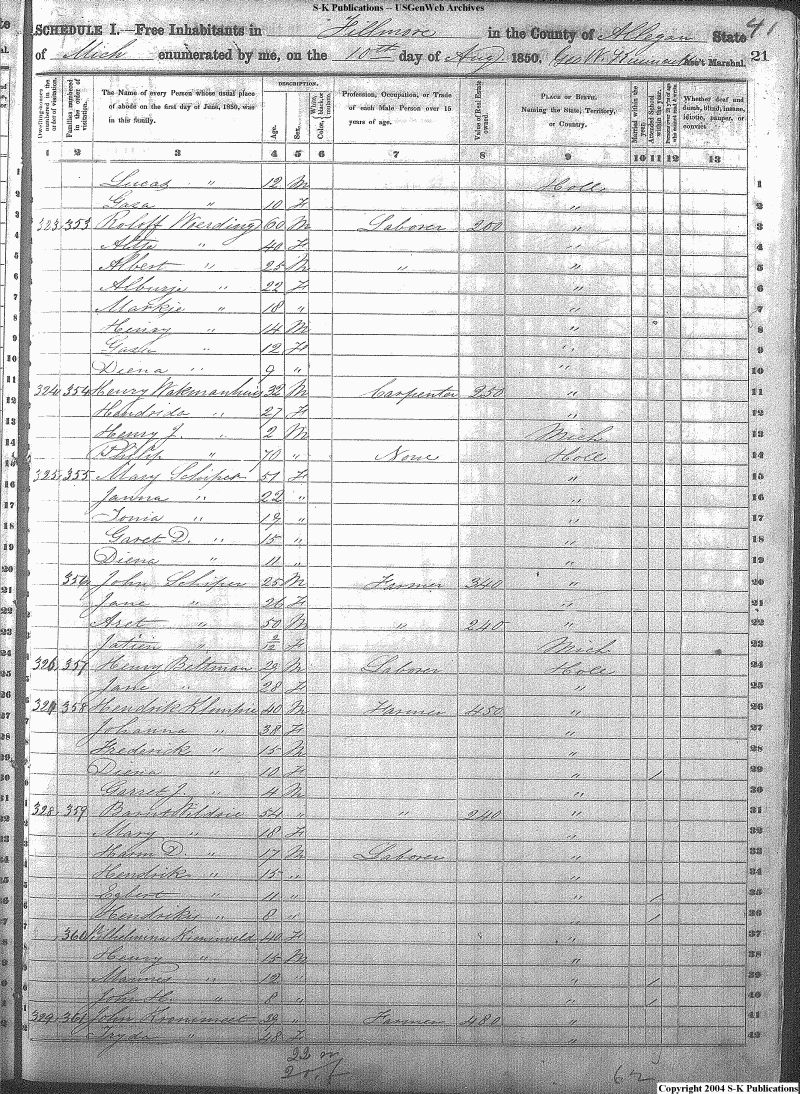 S-K Publications -- USGenWeb Archives
41
SCHEDULE I.—Free Inhabitants in Fillmore in the County of Allegan State
of Mich enumerated by me, on the 10th day of Aug 1850. Geo W. Ass't Marshal. 21
Dwelling-houses numbered in the order of visitation.
Families numbered in the order of visitation.
The Name of every Person whose usual place of abode on the first day of June, 1850, was in this family.
DESCRIPTION.
Age.
Sex.
Color, White, black, or mulatto.
Profession, Occupation, or Trade of each Male Person over 15 years of age.
Value of Real Estate owned.
PLACE OF BIRTH. Naming the State, Territory, or Country.
Married within the year.
Attended School within the year.
Persons over 20 y'rs of age who cannot read & write.
Whether deaf and dumb, blind, insane, idiotic, pauper, or convict.
1 2 3 4 5 6 7 8 9 10 11 12 13
1 Lucas " 12 M Holl 1
2 Gasa " 10 F " 2
3 323 353 Roloff Wierding 60 M Laborer 200 " 3
4 " 40 F " 4
5 Albert " 25 M " " 5
6 " 22 F " 6
7 " 18 " " 7
8 Henry " 14 M " 8
9 Gasa " 12 F " 9
10 Diena " 9 " " 10
11 324 354 Henry 32 M Carpenter 250 " 11
12 " 27 F " 12
13 Henry J. " 2 M Mich 13
14 Philip " 70 " None Holl 14
15 325 355 Mary Schiper 51 F " 15
16 Janna " 22 " " 16
17 Tonia " 19 " " 17
18 Garet D. " 15 " " 18
19 Diena " 11 " " 19
20 356 John Schiper 25 M Farmer 340 " 20
21 Jane " 26 F " 21
22 Aret " 50 M " 240 " 22
23 " 2/12 F Mich 23
24 326 357 Henry Beltman 29 M Laborer Holl 24
25 Jane " 28 F " 25
26 327 358 Hendrik Klumper 40 M Farmer 450 " 26
27 Johanna " 38 F " 27
28 Frederick " 15 M " 28
29 Diena " 10 F " / 29
30 Garret J. " 4 M " 30
31 328 359 54 " " 240 " 31
32 Mary " 18 F " 32
33 Harm D. " 17 M Laborer " 33
34 Hendrik " 15 " " 34
35 Egbert " 11 " " / 35
36 Hendrikus " 8 " " / 36
37 360 Wilhelmina 40 F " 37
38 Henry " 15 M " 38
39 " 12 " " / 39
40 John H. " 8 " " / 40
41 329 361 John Kronemeet 39 " Farmer 480 " 41
42 " 48 F " 42
22 m
20 f
62
Copyright 2004 S-K Publications